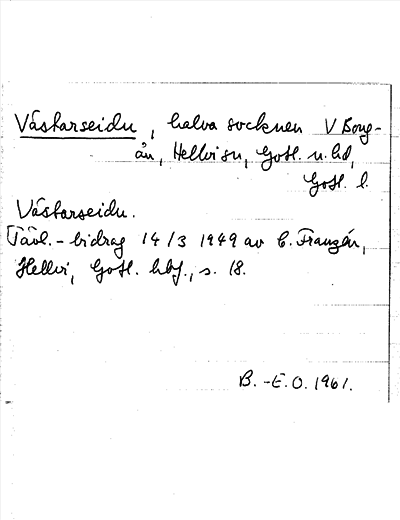 Västarseidu, halva socknen V Bong-
ån, Hellvi sn, Gotl. n. hd,
Gotl. l.
Västarseidu.
[Tävl.-bidrag 14/3 1949 av C. Franzén,
Hellvi, Gotl. hbf., s. 18.
B.-E.O. 1961.